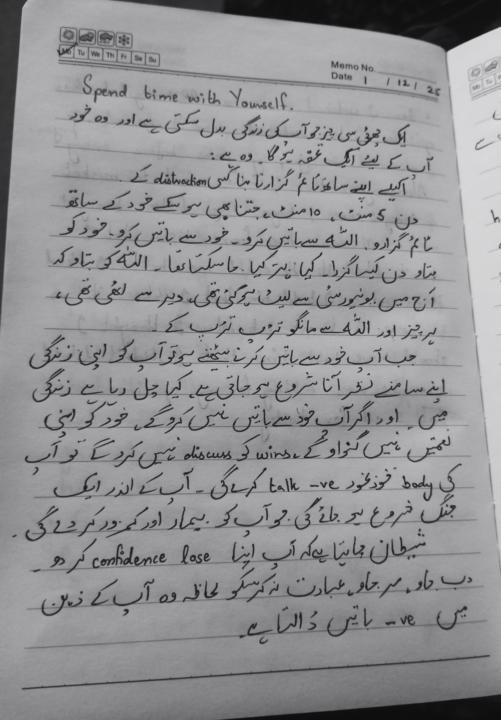 Mo Tu We Th Fr Sa Su
Memo No.
Date 1 / 12 / 25
Spend time with Yourself.
ایک چھوٹی سی چیز جو آپ کی زندگی بدل سکتی ہے اور وہ خود
آپ کے لیئے ایک تحفہ ہوگا۔ وہ ہے:
اکیلے اپنے ساتھ ٹائم گزارنا بنا کسی distraction کے
دن 5 منٹ، 10 منٹ، جتنا بھی ہوسکے خود کے ساتھ
ٹائم گزارو۔ اللہ سے باتیں کرو۔ خود سے باتیں کرو۔ خود کو
بتاو دن کیسا گزرا۔ کیا بہتر کیا جا سکتا تھا۔ اللہ کو بتاو کہ
آج میں یونیورسٹی سے لیٹ ہوگئی تھی، دیر سے اٹھی تھی،
ہر چیز اور اللہ سے مانگو تڑپ تڑپ کے
جب آپ خود سے باتیں کرنے بیٹھتے ہو تو آپ کو اپنی زندگی
اپنے سامنے نظر آنا شروع ہو جاتی ہے۔ کیا چل رہا ہے زندگی
میں۔ اور اگر آپ خود سے باتیں نہیں کروگے۔ خود کو اپنی
نعمتیں نہیں گنواوگے، wins کو discuss نہیں کروگے تو آپ
کی body خودبخود -ve talk کرےگی۔ آپ کے اندر ایک
جنگ شروع ہو جائے گی جو آپ کو بیمار اور کمزور کر دے گی۔
شیطان چاہتا ہےکہ آپ اپنا confidence lose کر دو۔
دب جاو، مر جاو، عبادت نہ کرسکو لحاظہ وہ آپ کے ذہن
میں -ve باتیں ڈالتا ہے۔